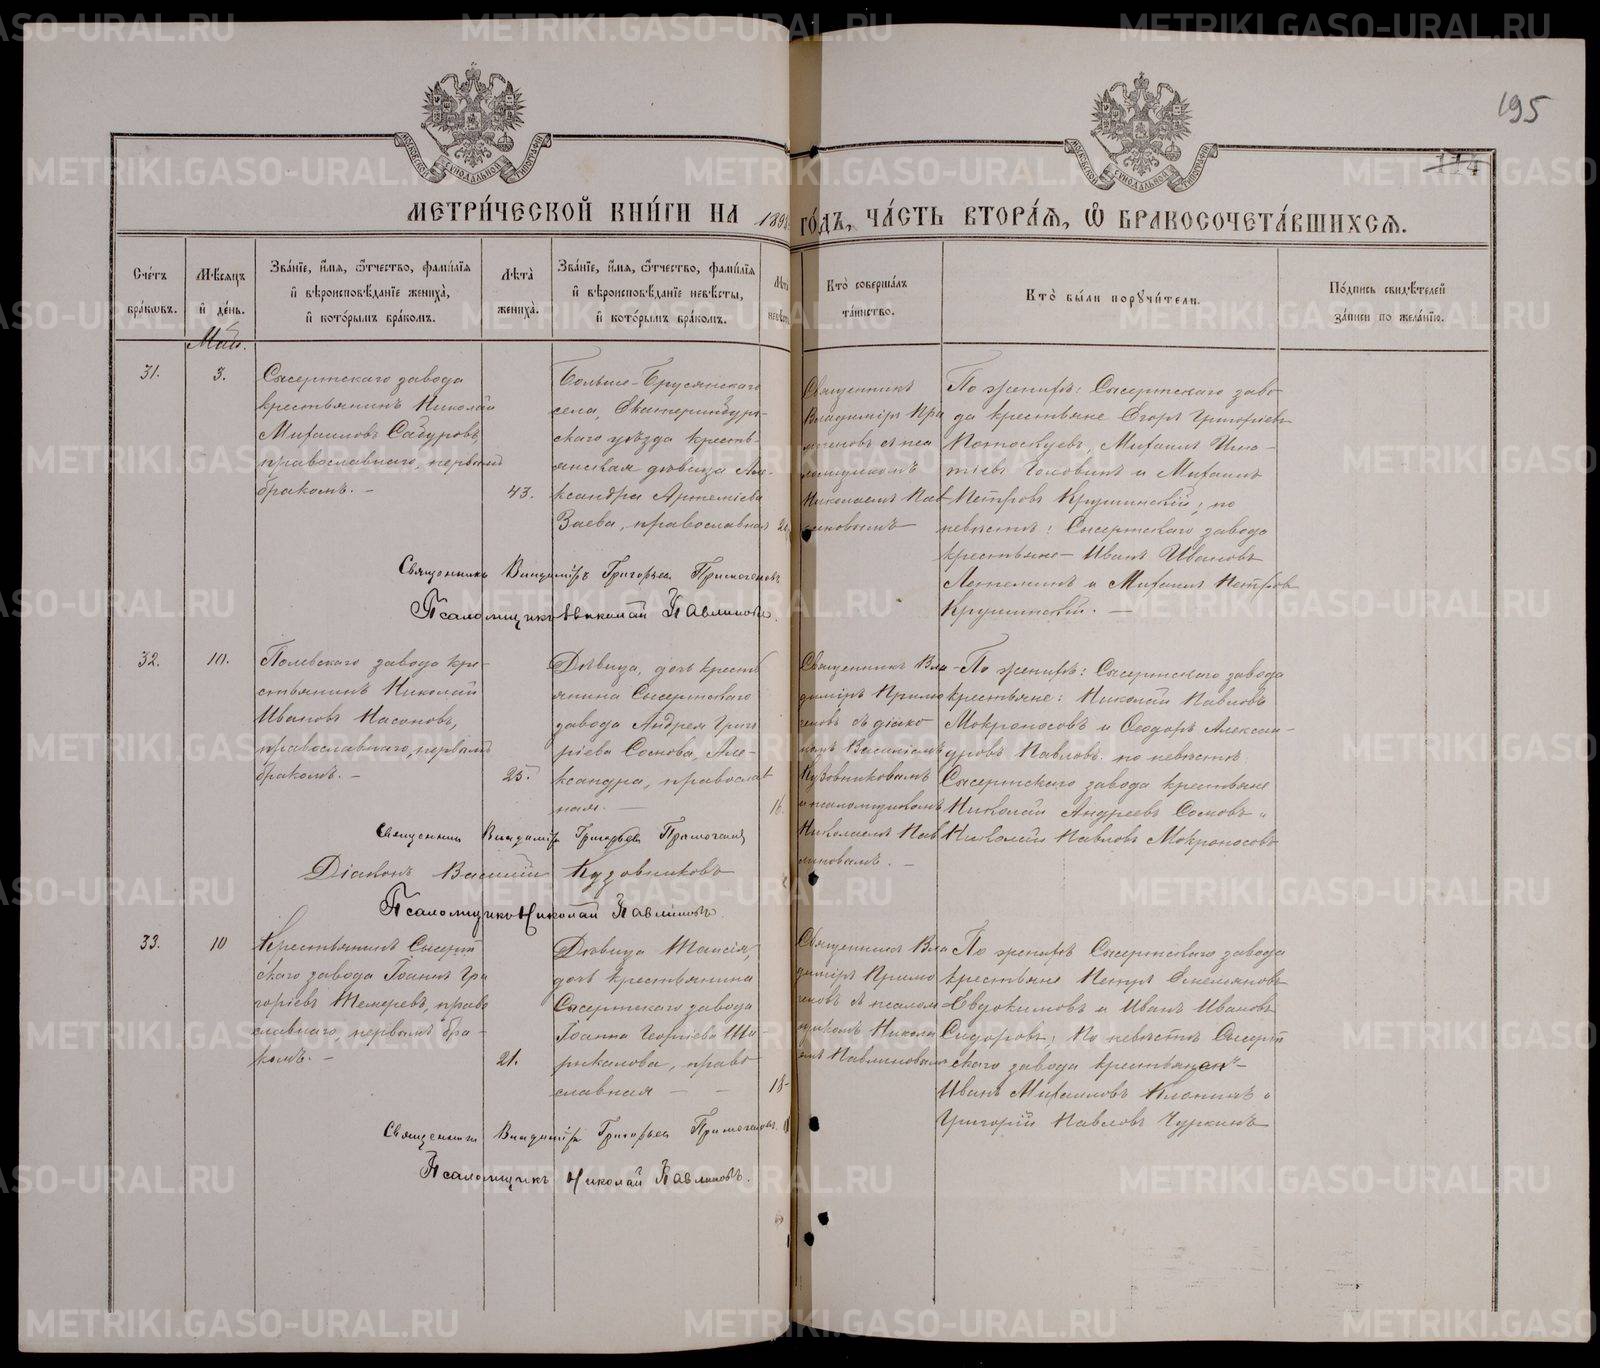 195
114
МЕТРИ́ЧЕСКОЙ КНИ́ГИ НА 1898 ГО́ДЪ, ЧА́СТЬ ВТОРА́Я, Ѿ БРАКОСОЧЕТА́ВШИХСЯ.
Сче́тъ бра́ковъ.
Мѣ́сяцъ и҆ де́нь.
Зва́нїе, и҆́мя, ѻ҆́тчество, фами́лїя и҆ вѣроисповѣ́данїе жениха̀, и҆ кото́рымъ бра́комъ.
Лѣ́та жениха̀.
Зва́нїе, и҆́мя, ѻ҆́тчество, фами́лїя и҆ вѣроисповѣ́данїе невѣ́сты, и҆ кото́рымъ бра́комъ.
Кто̀ соверша́лъ та́инство.
Кто̀ бы́ли порꙋчи́тели.
По́дпись свидѣ́телей за́писи по жела́нїю.
Май.
31.
3.
Сысертскаго завода
крестьянинъ Николай
Михаиловъ Сабуровъ
православнаго, первымъ
бракомъ. –
43.
Больше-Брусянскаго
села, Екатеринбург-
скаго уѣзда кресть-
янская дѣвица Але-
ксандра Артемiева
Заева, православная
Священникъ
Владимiръ При
могеновъ съ пса
ломщикомъ
Николаемъ Пав
линовымъ
По женихѣ: Сысертскаго заво-
да крестьяне Егоръ Григорьевъ
Потоскуевъ, Михаилъ Игна-
тiевъ Головинъ и Михаилъ
Петровъ Крушинскiй; по
невѣстѣ: Сысертскаго завода
крестьяне – Иванъ Ивановъ
и Михаилъ Петровъ
Крушинскiй. –
Священникъ Владимiръ Григорьевъ Примогеновъ
Псаломщикъ Николай Павлиновъ.
32.
10.
Полевскаго завода кре-
стьянинъ Николай
Ивановъ Насоновъ,
православнаго, первымъ
бракомъ. –
25.
Дѣвица, дочь кресть
янина Сысертскаго
завода Андрея Григо
рiева Соснова, Але-
ксандра, православ
ная. –
16.
Священникъ Вла-
димiръ Примо
геновъ съ дiако
номъ Василiемъ
Кузовниковымъ
и псаломщикомъ
Николаемъ Пав
линовымъ. –
По женихѣ: Сысертскаго завода
крестьяне: Николай Павловъ
Мокроносовъ и Ѳеодоръ Алексан-
дровъ Павловъ. по невѣстѣ
Сысертскаго завода крестьяне
Николай Андреевъ Сосновъ и
Николай Павловъ Мокроносовъ
Священникъ Владимiръ Григорьевъ Примогеновъ
Дiаконъ Василiй Кузовниковъ
Псаломщикъ Николай Павлиновъ.
33.
10
Крестьянинъ Сысерт
скаго завода Iоаннъ Гри
горiевъ Шемеревъ, право
славнаго, первымъ бра-
комъ. –
21.
Дѣвица Таисiя,
дочь крестьянина
Сысертскаго завода
Iоанна Георгiева Ши-
рыкалова, право
славная – –
18
Священникъ Вла
димiръ Примо
геновъ съ псалом
щикомъ Никола
емъ Павлиновымъ
По женихѣ Сысертскаго завода
крестьяне Петръ Емельяновъ
Евдокимовъ и Иванъ Ивановъ
Сидоровъ; По невѣстѣ Сысерт
скаго завода крестьяне –
Иванъ Михаиловъ и
Григорiй Павловъ Чуркинъ
Священникъ Владимiръ Григорьевъ Примогеновъ
Псаломщикъ Николай Павлиновъ.
METRIKI.GASO-URAL.RU